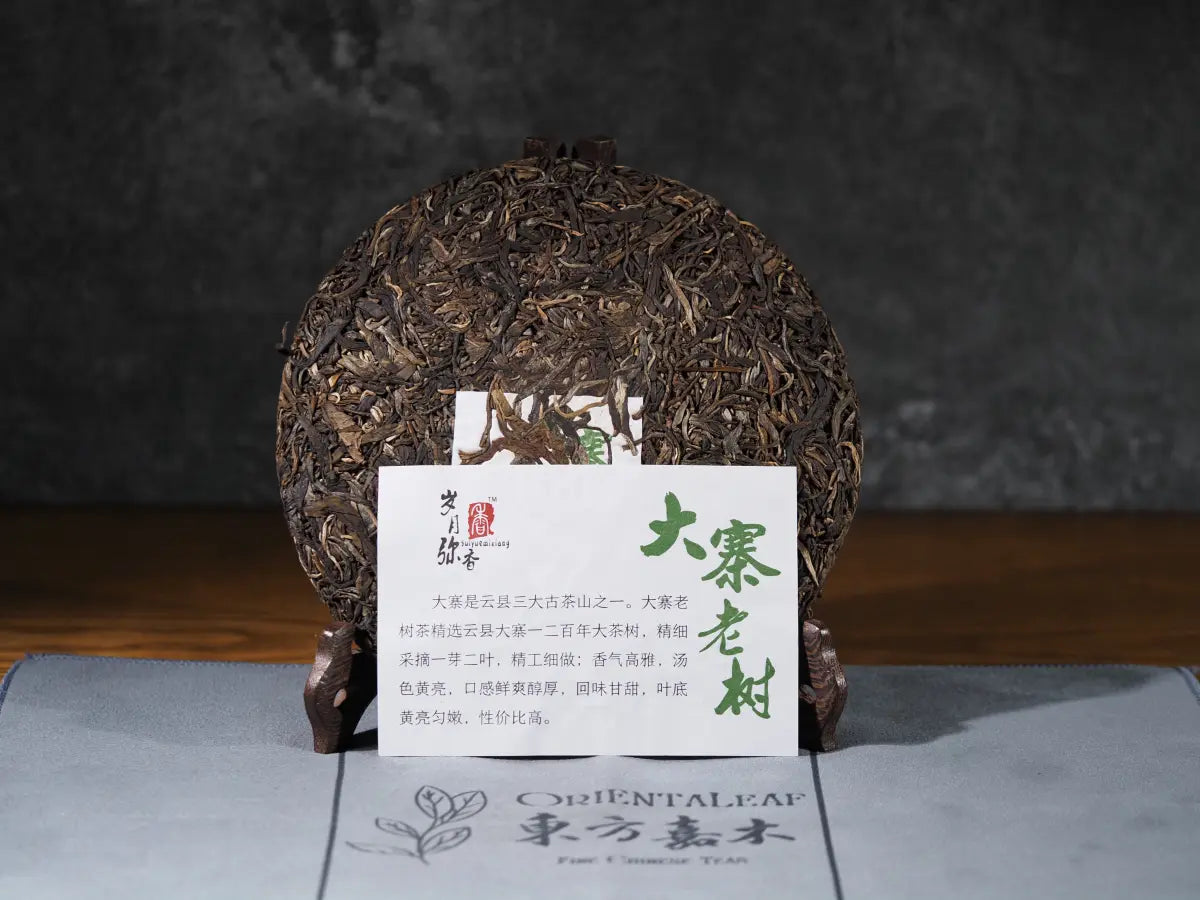 岁月弥香
TM
香
Suiyuemixiang
大寨老树
大寨是云县三大古茶山之一。大寨老
树茶精选云县大寨一二百年大茶树，精细
采摘一芽二叶，精工细做；香气高雅，汤
色黄亮，口感鲜爽醇厚，回味甘甜，叶底
黄亮匀嫩，性价比高。
ORIENTALEAF
東方嘉木
FINE CHINESE TEAS